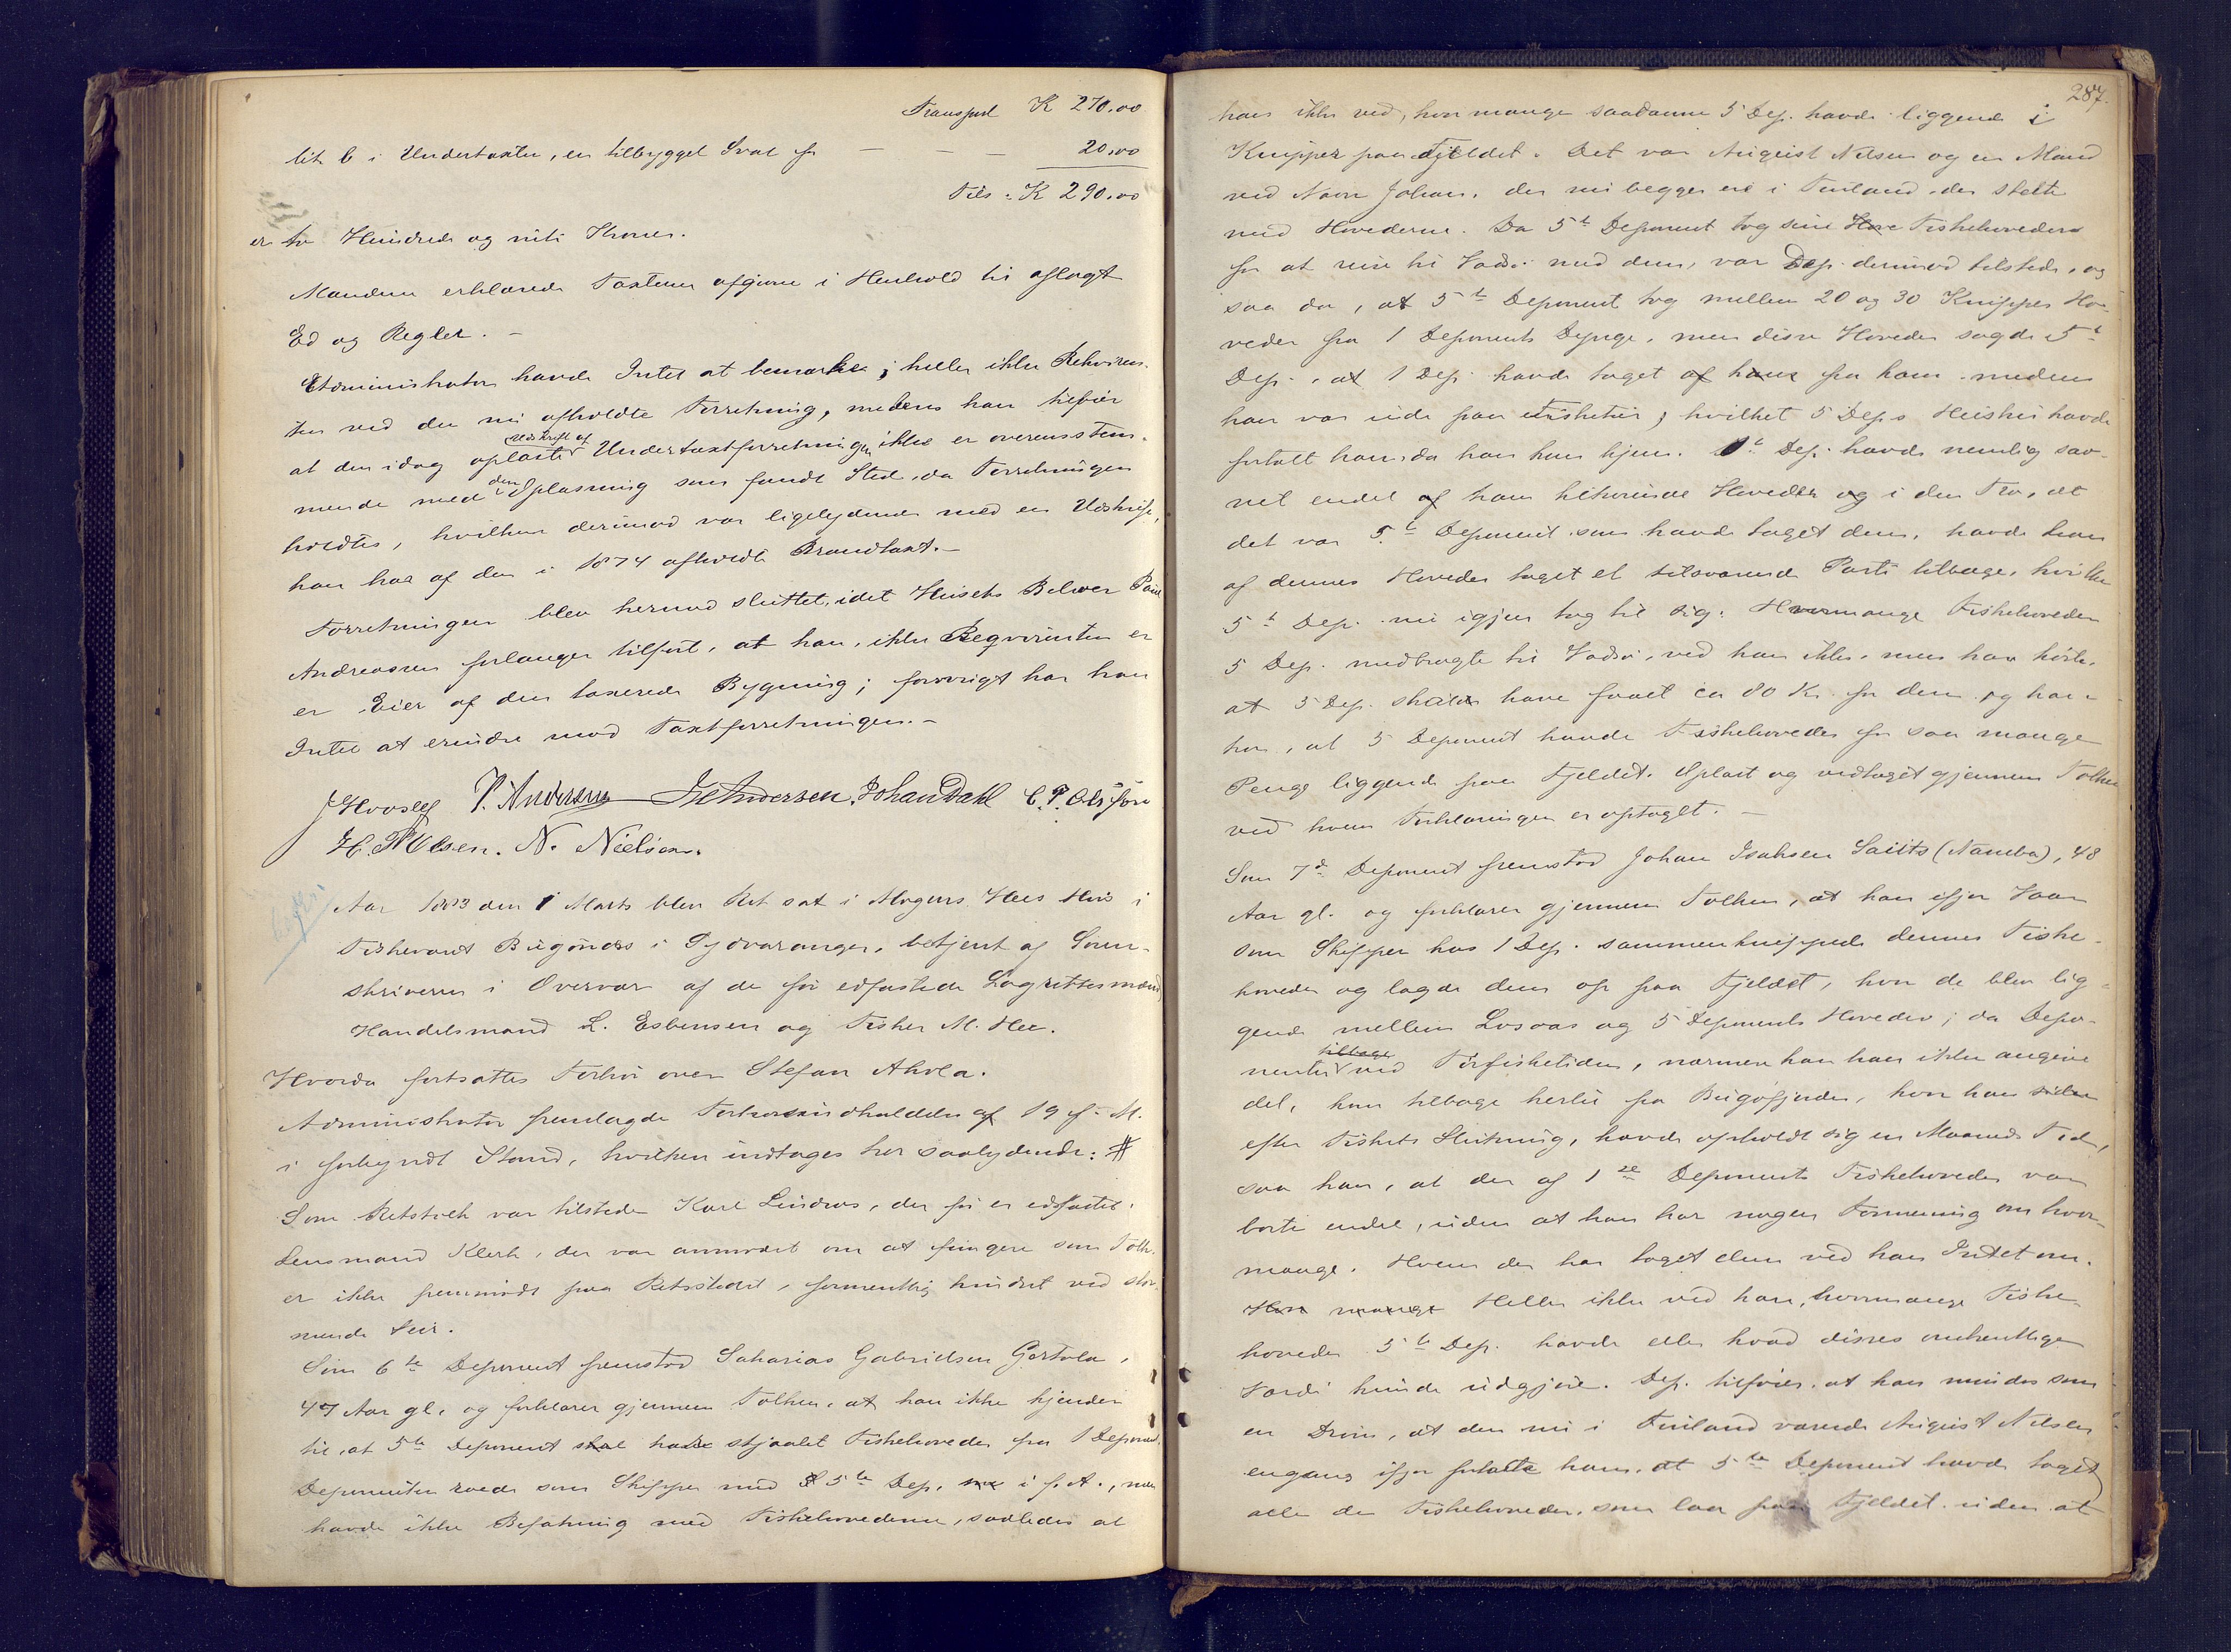 Transport K 270.00
lit b i Undertaxten, en tilbygget Sval for — — — 20.00
Tils: K 290.00
er to Hundrede og niti Kroner.
Mændene erklærede Taxterne afgivne i Henhold til aflagt
Ed og Regler. —
Administrator havde Intet at bemærke; heller ikke Rekviren-
ten ved den nu afholdte Forretning, medens han tilføier
at den idag oplæste Udskrift af Undertaxtforretningen ikke er overensstem-
mende med den Oplæsning som fandt Sted, da Forretningen
holdtes, hvilken derimod var ligelydende med en Udskrift,
han har af den i 1874 afholdte Brandtaxt. —
Forretningen blev hermed sluttet, idet Husets Beboer Paul
Andreassen forlanger tilført, at han, ikke Reqvirenten er
er Eier af den taxerede Bygning; forøvrigt har han
Intet at erindre mod Taxtforretningen. —
J Hvoslef P. Andersen Johan Dahl C. P. Olsson
H. P. Olsen. N. Nielsen.
Aar 1883 den 1 Marts blev Ret sat i Mogens Hees Hus i
Fiskeværet Bugønæs i Sydvaranger, betjent af Soren-
skriveren i Overvær af de før edfæstede Lagrettesmænd
Handelsmand L. Esbensen og Fisker M. Hee.
Hvorda fortsattes Forhør over Stefan Ahola.
Administrator fremlagde Forhørsindkaldelse af 19 f. M.
i forkyndt Stand, hvilken indtages her saalydende: #
Som Retstolk var tilstede Karl Lindros, der før er edfæstet.
Lensmand Klerk, der var anmodet om at fungere som Tolk.
er ikke fremmødt paa Retsstedet, formentlig hindret ved stor-
mende Veir.
Som 6te Deponent fremstod Sakarias Gabrielsen Gertola,
47 Aar gl. og forklarer gjennem Tolken, at han ikke kjender
til, at 5te Deponent skal have stjaalet Fiskehoveder fra 1 Deponent.
Deponenten roede som Skipper med 5te Dep. i f. A., men
havde ikke Befatning med Fiskehovederne, saaledes at
287.
han ikke ved, hvor mange saadanne 5 Dep. havde liggende i
Knipper paa Fjeldet. Det var August Nilsen og en Mand
ved Navn Johan, der nu begge ere i Finland, der stelte
med Hovederne. Da 5te Deponent tog sine Hove Fiskehoveder
for at reise til Vadsø med dem, var Dep. derimod tilstede, og
saa da, at 5te Deponent tog mellem 20 og 30 Knipper Ho-
veder fra 1 Deponents Dynge, men disse Hoveder sagde 5te
Dep., at 1 Dep. havde taget af hans fra ham medens
han var ude paa Fisketur, hvilket 5 Deps Hustru havde
fortalt ham, da han kom hjem. 1te Dep. havde nemlig sav-
net endel af ham tilhørende Hoveder og i den Tro, at
det var 5te Deponent, som havde taget dem, havde han
af dennes Hoveder taget et tilsvarende Parti tilbage, hvilke
5te Dep. nu igjen tog til sig. Hvormange Fiskehoveder
5 Dep. medbragte til Vadsø, ved han ikke, men han hørte,
at 5 Dep. skulde have faaet ca 80 Kr. for dem og han
tror, at 5 Deponent havde Fiskehoveder for saa mange
Penge liggende paa Fjeldet. Oplæst og vedtaget gjennem Tolken
ved hvem Forklaringen er optaget. —
Som 7de Deponent fremstod Johan Isaksen Saiits (Nameba), 48
Aar gl. og forklarer gjennem Tolken, at han ifjor Vaar
som Skipper hos 1 Dep. sammenknippede dennes Fiske-
hoveder og lagde dem op paa Fjeldet, hvor de blev lig-
gende mellem Losoas og 5 Deponents Hoveder; da Depo-
nenten tilbage ved Førfisketiden, nærmere kan han ikke angive
det, kom tilbage hertil fra Bugøfjorden, hvor han siden
efter Fiskets Slutning, havde opholdt sig en Maaneds Tid,
saa han, at der af 1ste Deponents Fiskehoveder var
borte endel, uden at han har nogen Formening om hvor-
mange. Hvem der har taget dem ved han Intet om.
Hvor mange Heller ikke ved han, hvormange Fiske-
hoveder 5te Dep. havde eller hvad disses omkentlige
Værdi kunde udgjøre. Dep. tilføier, at han mindes som
en Drøm, at den nu i Finland værende August Nilsen
engang ifjor fortalte ham, at 5te Deponent havde taget
alle de Fiskehoveder, som laa paa Fjeldet uden at